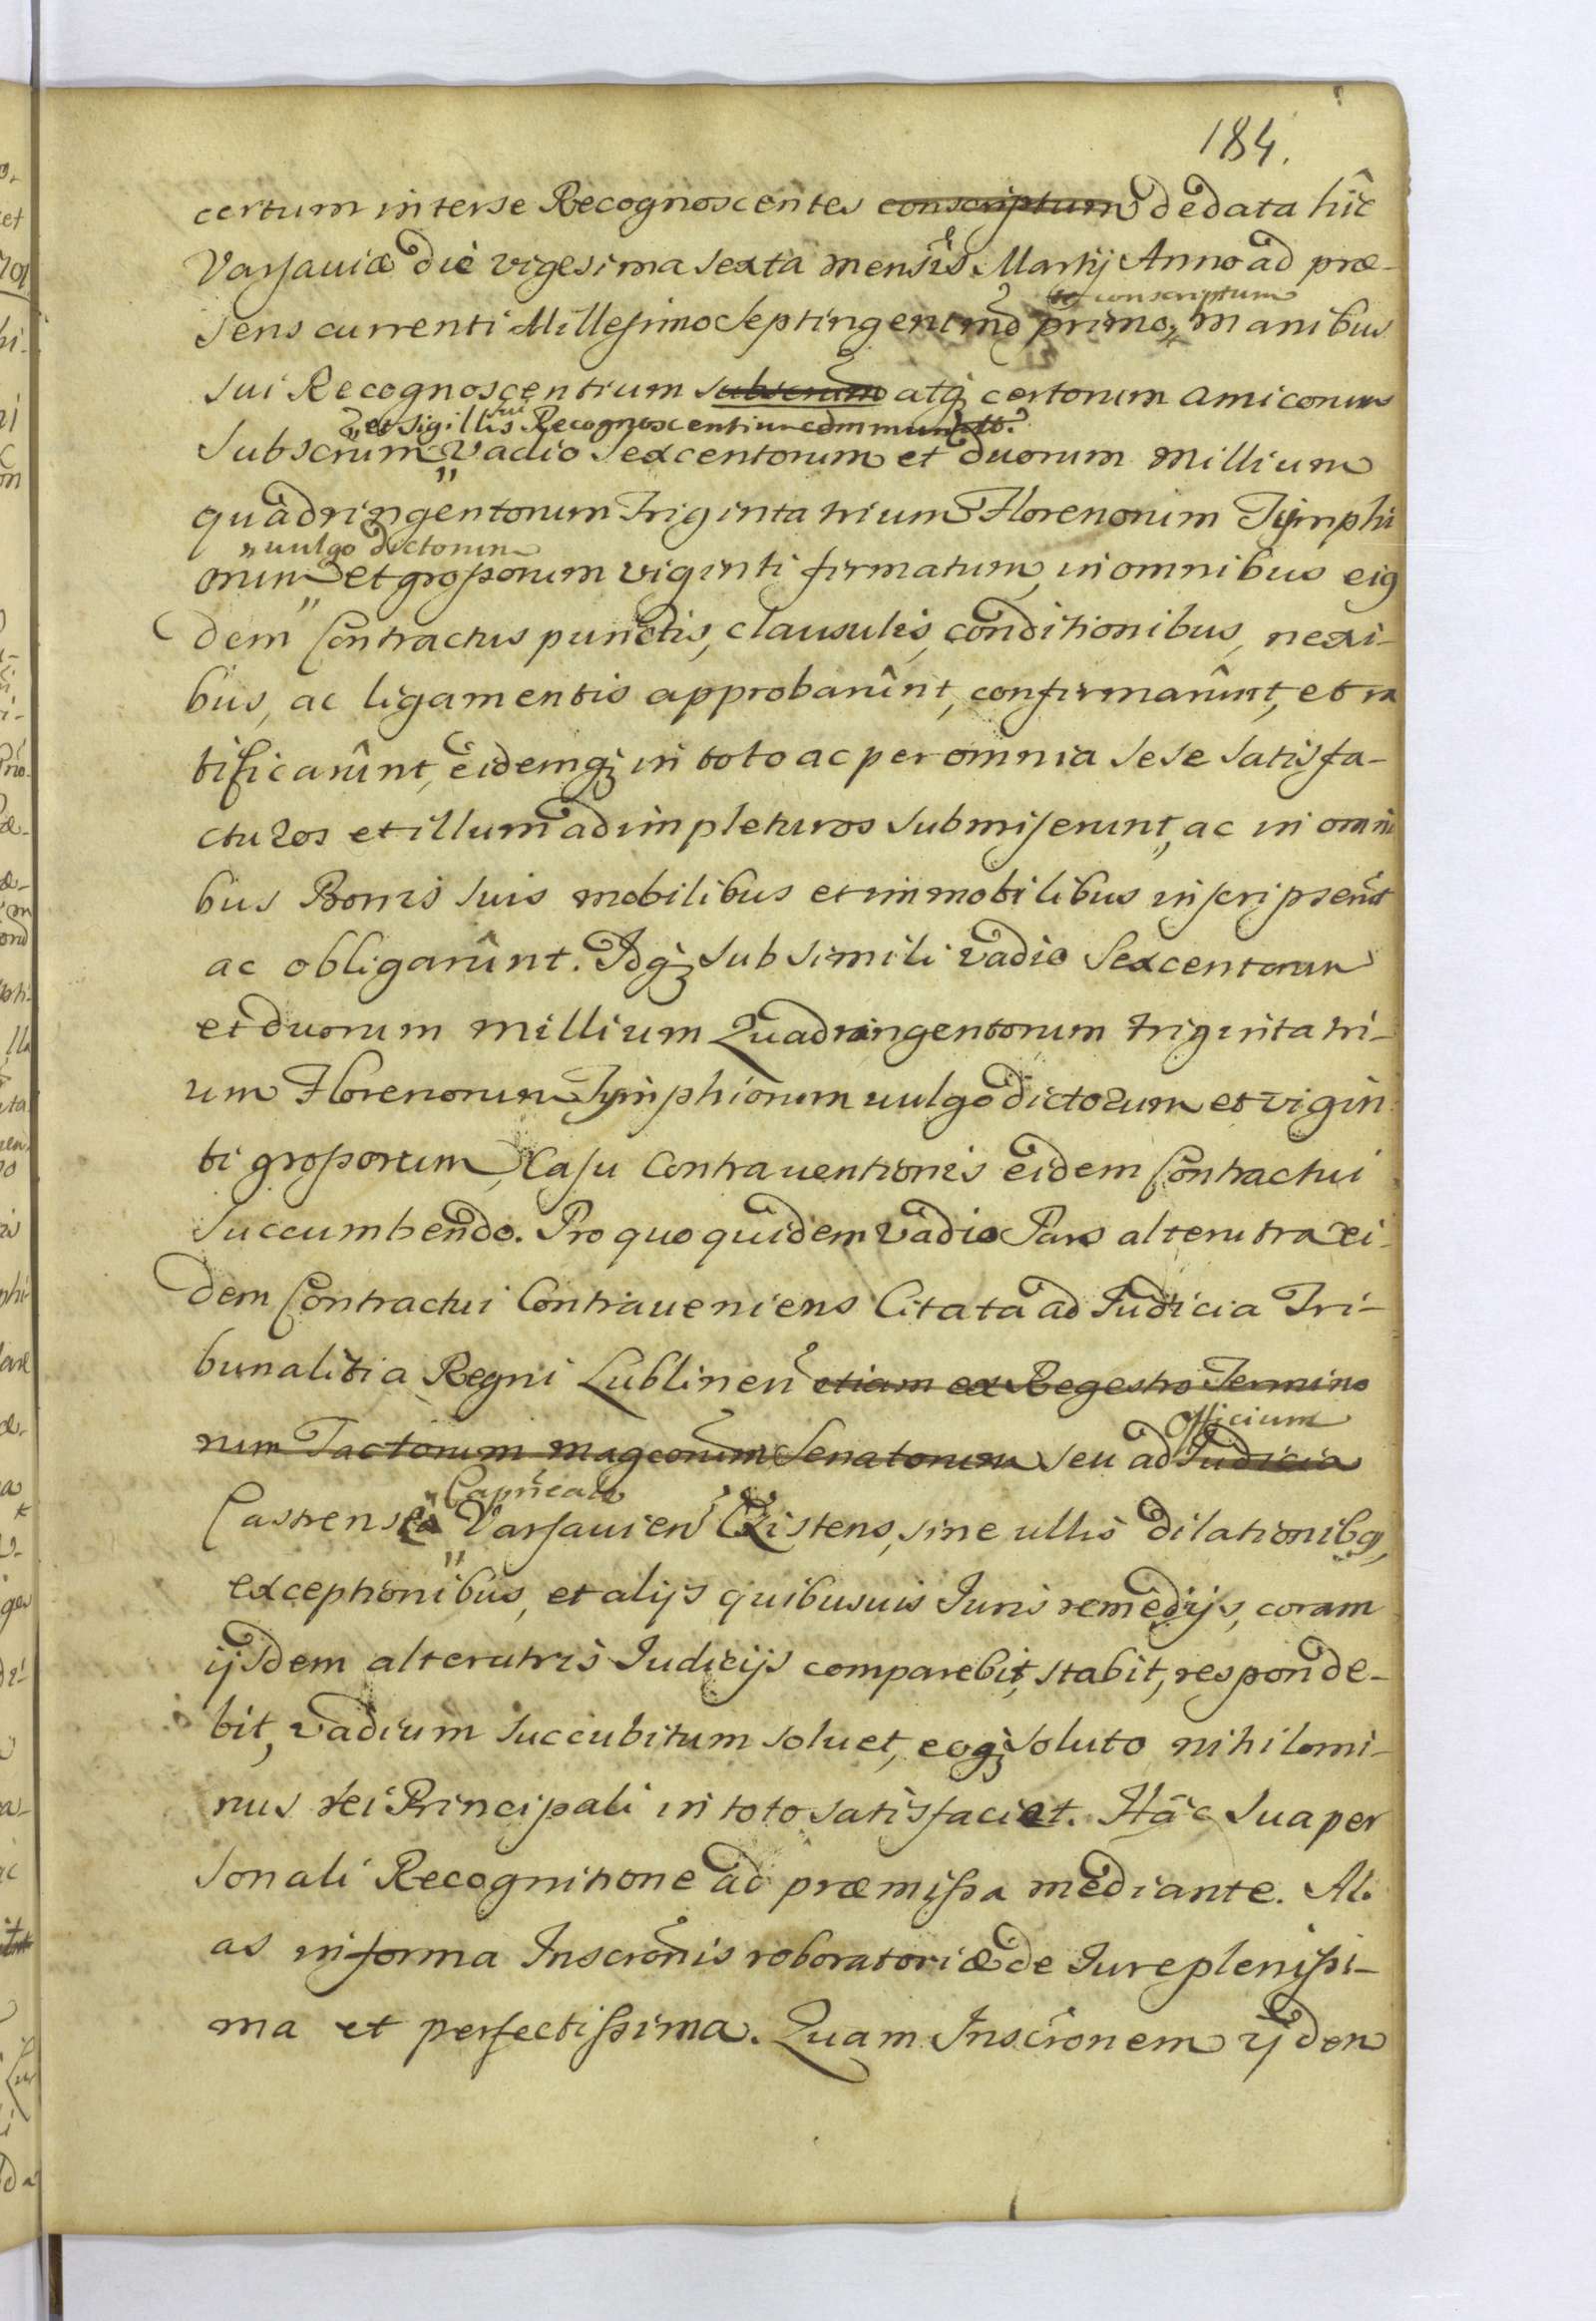 184.
certum inter se Recognoscentes conscriptum de data hîc
Varsaviæ die vigesima sexta mensis Martij Anno ad præ-
conscriptum
sens currenti Millesimo Septingentmo primo, manibus
sui Recognoscentium subscrum atq certorum amicorum
et sigillis sui Recognoscentium communitt.
Subscrum Vadio Sexcentorum et duorum millium
quadringentorum Triginta trium Florenorum Tymphi
vulgo dictorum
orum et grossorum viginti firmatum, in omnibus eig
dem Contractus punctis, clausulis, conditionibus, nexi-
bus, ac ligamentis approbarûnt, confirmarûnt, et ra
tificarûnt, eidemq in toto ac per omnia sese satisfa-
cturos et illum adimpleturos submiserunt, ac in omni
bus Bonis suis mobilibus et immobilibus inscripserunt
ac obligarûnt. Idq sub simili vadio Sexcentorum
et duorum millium Quadringentorum triginta tri-
um Florenorum Tymphiorum uulgo dictorum et vigin
ti grossorum, Casu Contrauentionis eidem Contractui
succumbendo. Pro quo quidem vadio Pars alterutra ei-
dem Contractui Contraueniens Citata ad Judicia Tri-
bunalitia Regni Lublinen etiam ex Regestro Termino
Officium
rum Tactorum magcorum Senatorum seu ad Judicia
Capneale
Castrense Varsauien Existens, sine ullis dilationibq,
exceptionibus, et alijs quibusuis Juris remedijs, coram
ijsdem alterutris Judicijs comparebit, stabit, responde-
bit, vadium succubitum soluet, eoq soluto nihilomi-
nus rei Principali in toto satisfaciet. Hâc sua per
sonali Recognitione ad præmissa mediante. Ali
as in forma Inscronis roboratoriæ de Jure plenissi-
ma et perfectissima. Quam Inscronem ijdem